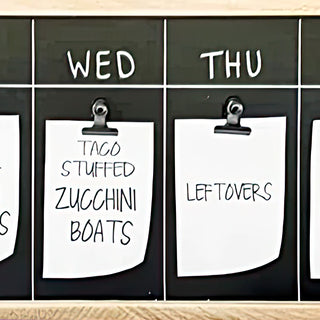 WED
THU
TACO
STUFFED
ZUCCHINI
BOATS
LEFTOVERS